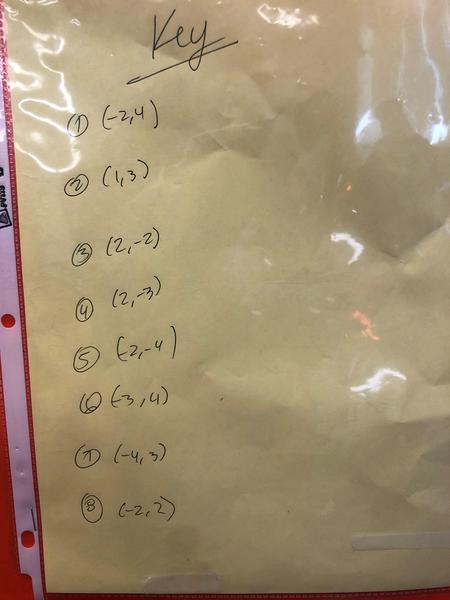 Key
① (-2,4)
② (1,3)
③ (2,-2)
④ (2,-3)
⑤ (-2,-4)
⑥ (-3,4)
⑦ (-4,3)
⑧ (-2,2)